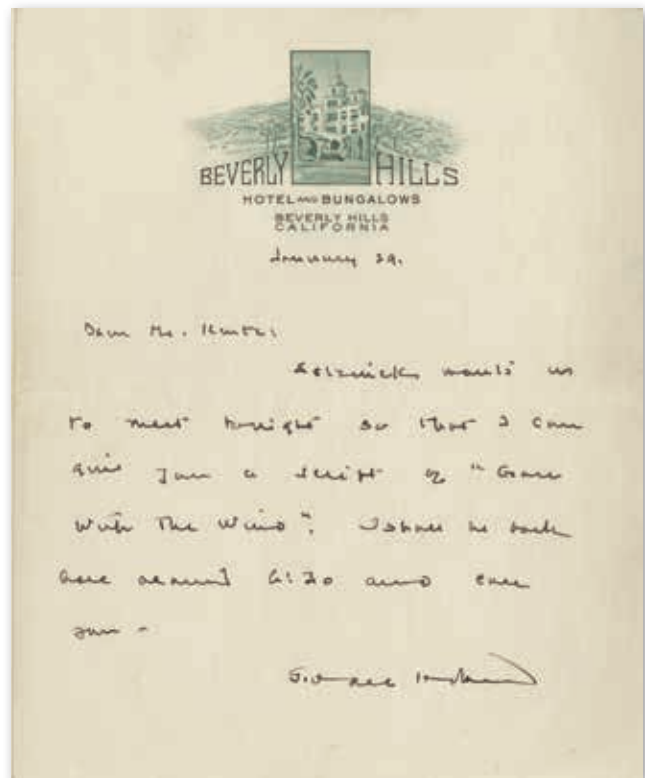 BEVERLY HILLS
HOTEL AND BUNGALOWS
BEVERLY HILLS
CALIFORNIA
January 29.
Dear Mr.
Selznick wants us
to meet tonight so that I can
give you a script of "Gone
With The Wind". I shall be back
here around 6:30 and call
you -